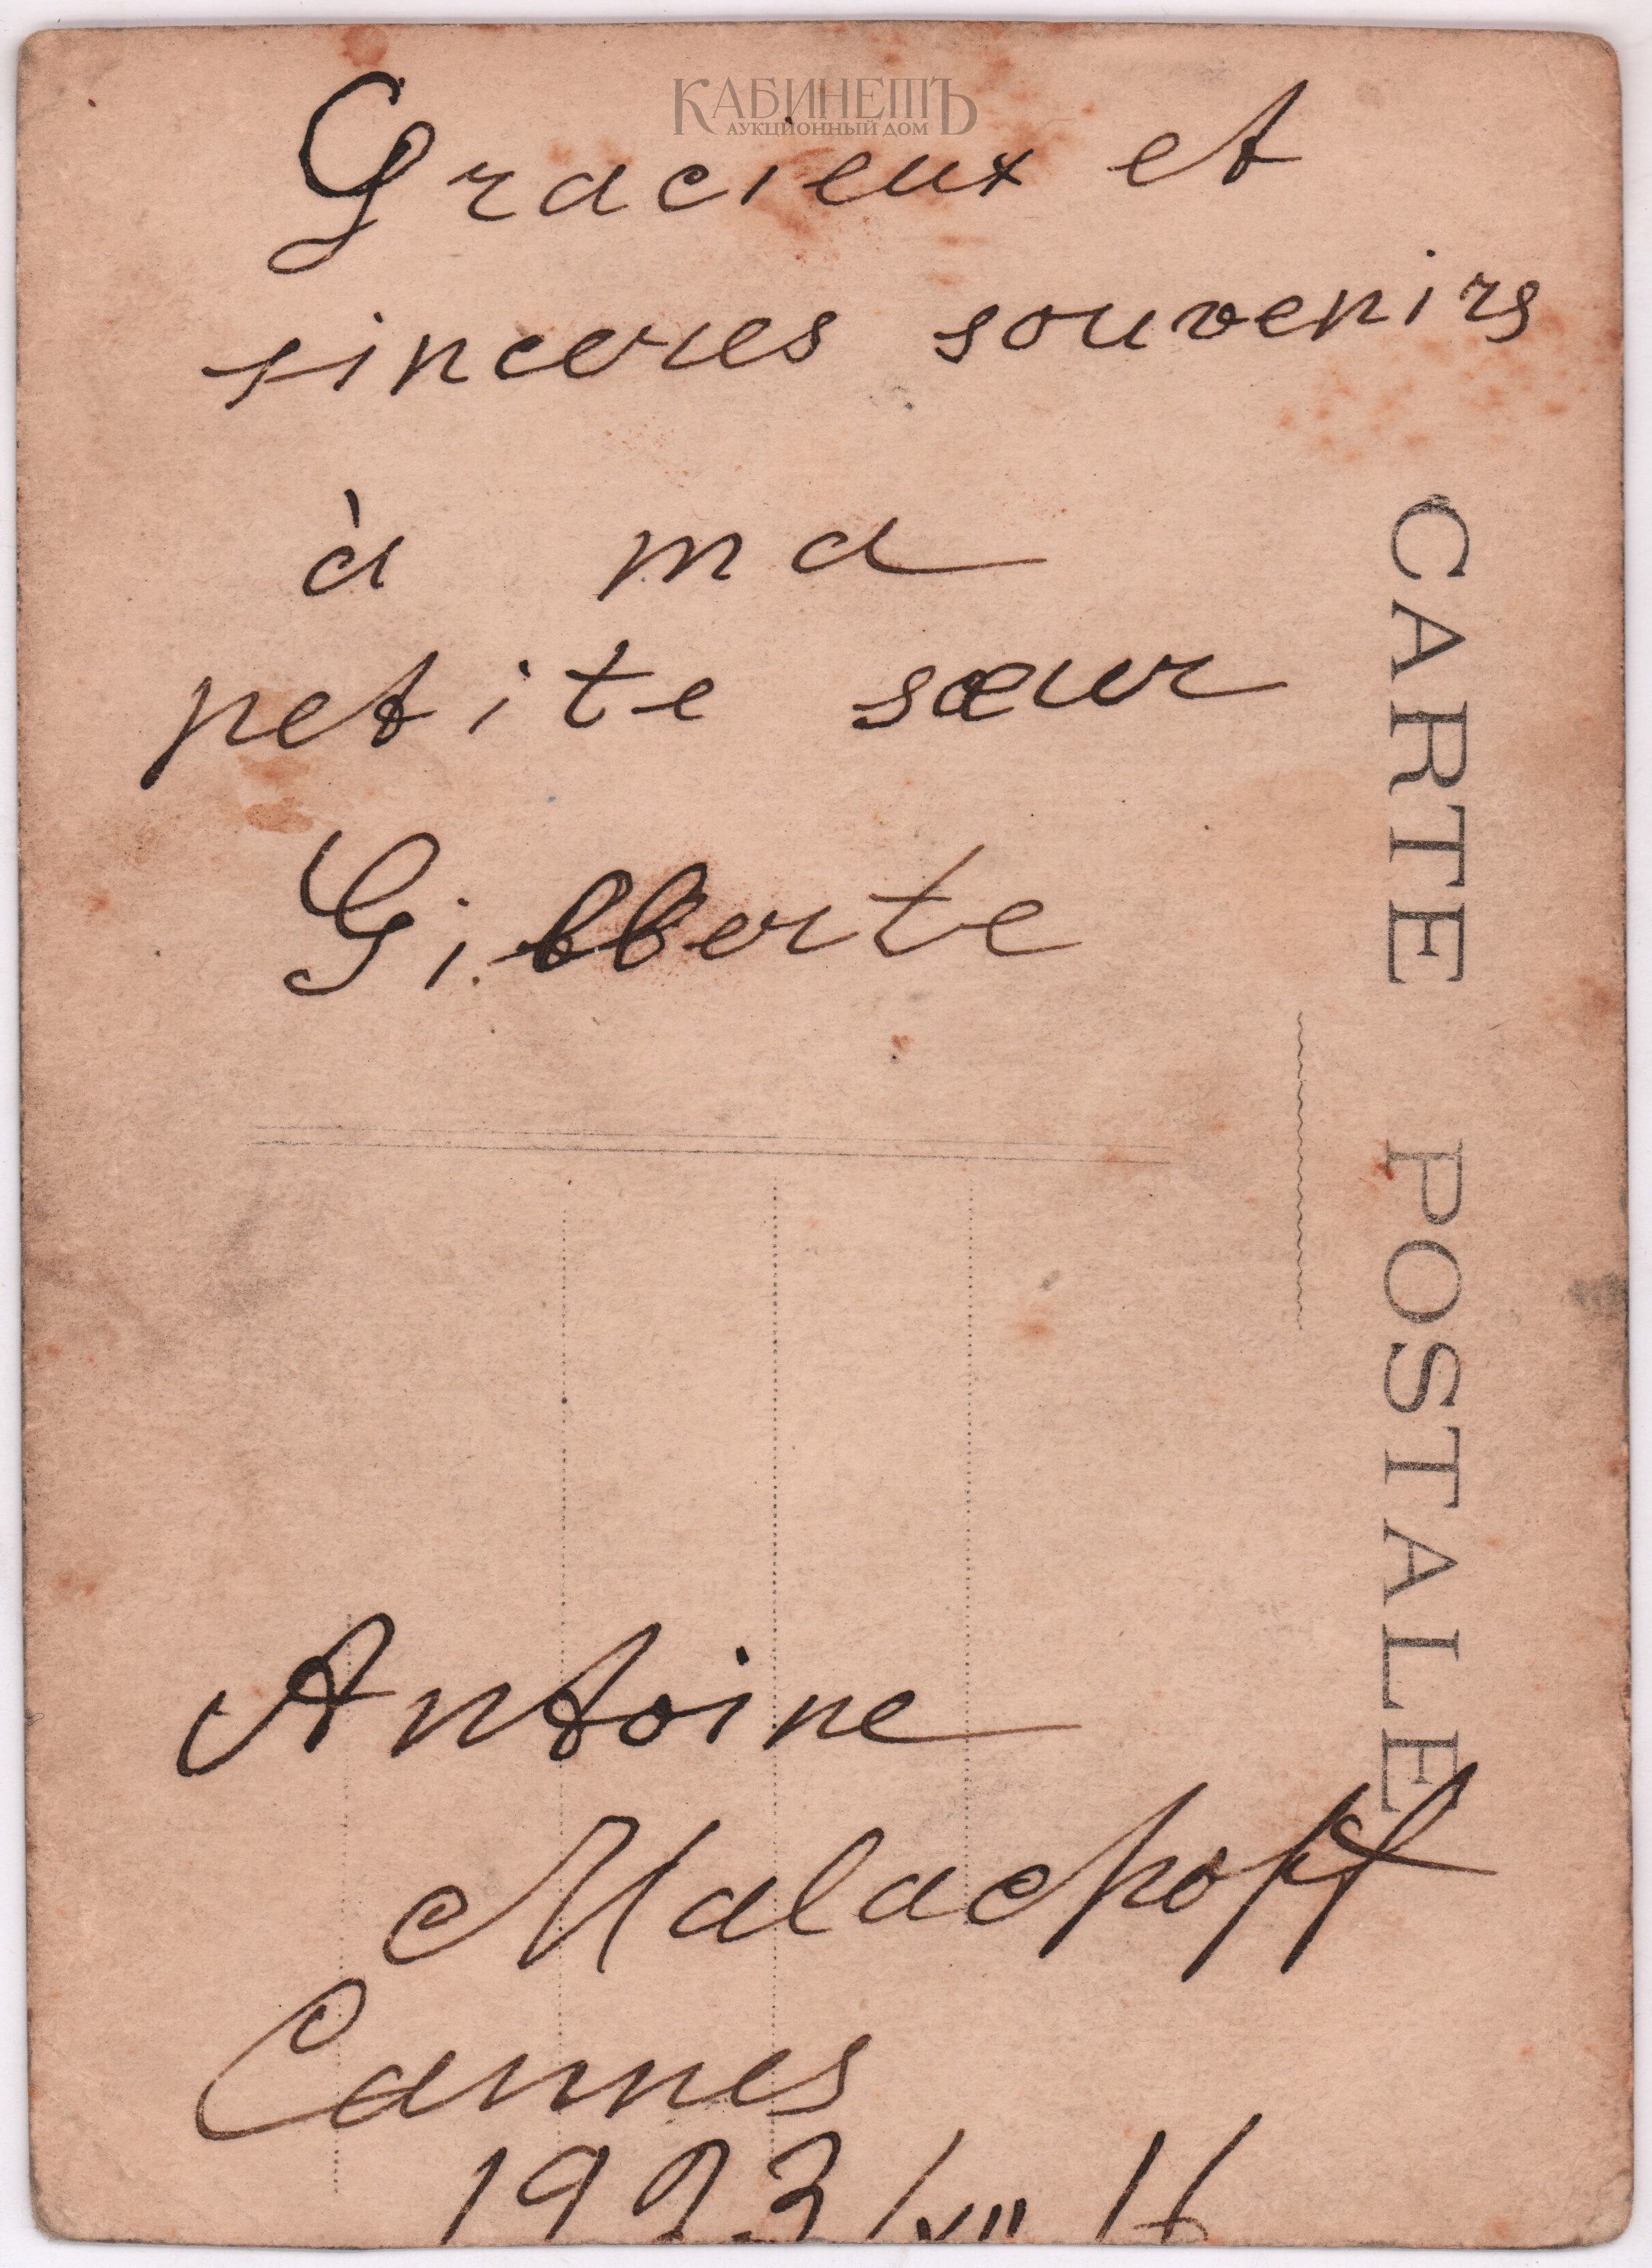 КАБИНЕТЪ
АУКЦИОННЫЙ ДОМ
Gracieux et
sinceres souvenirs
à ma
petite sœur
Gilberte
CARTE POSTALE
Antoine
Malachoff
Cannes
1923/VII